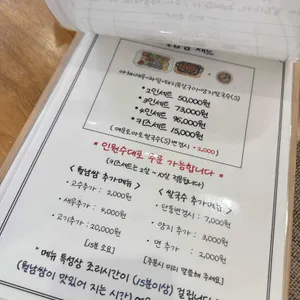 *2인세트 50,000원
*3인세트 73,000원
*4인세트 96,000원
*키즈세트 15,000원
* 인원수대로 주문 가능합니다 *
<월남쌈 추가메뉴>
· 고수추가 : 2,000원
· 새우추가 : 4,000원
· 고기추가 : 20,000원
[15분 소요]
<쌀국수 추가메뉴>
· 단품변경시 : 7,000원
· 양지 추가 : 3,000원
· 면 추가 : 2,000원
[주문시 미리 말씀해 주세요]
* 메뉴 특성상 조리시간이 (15분이상) 걸립니다
(월남쌈이 맛있어 지는 시간